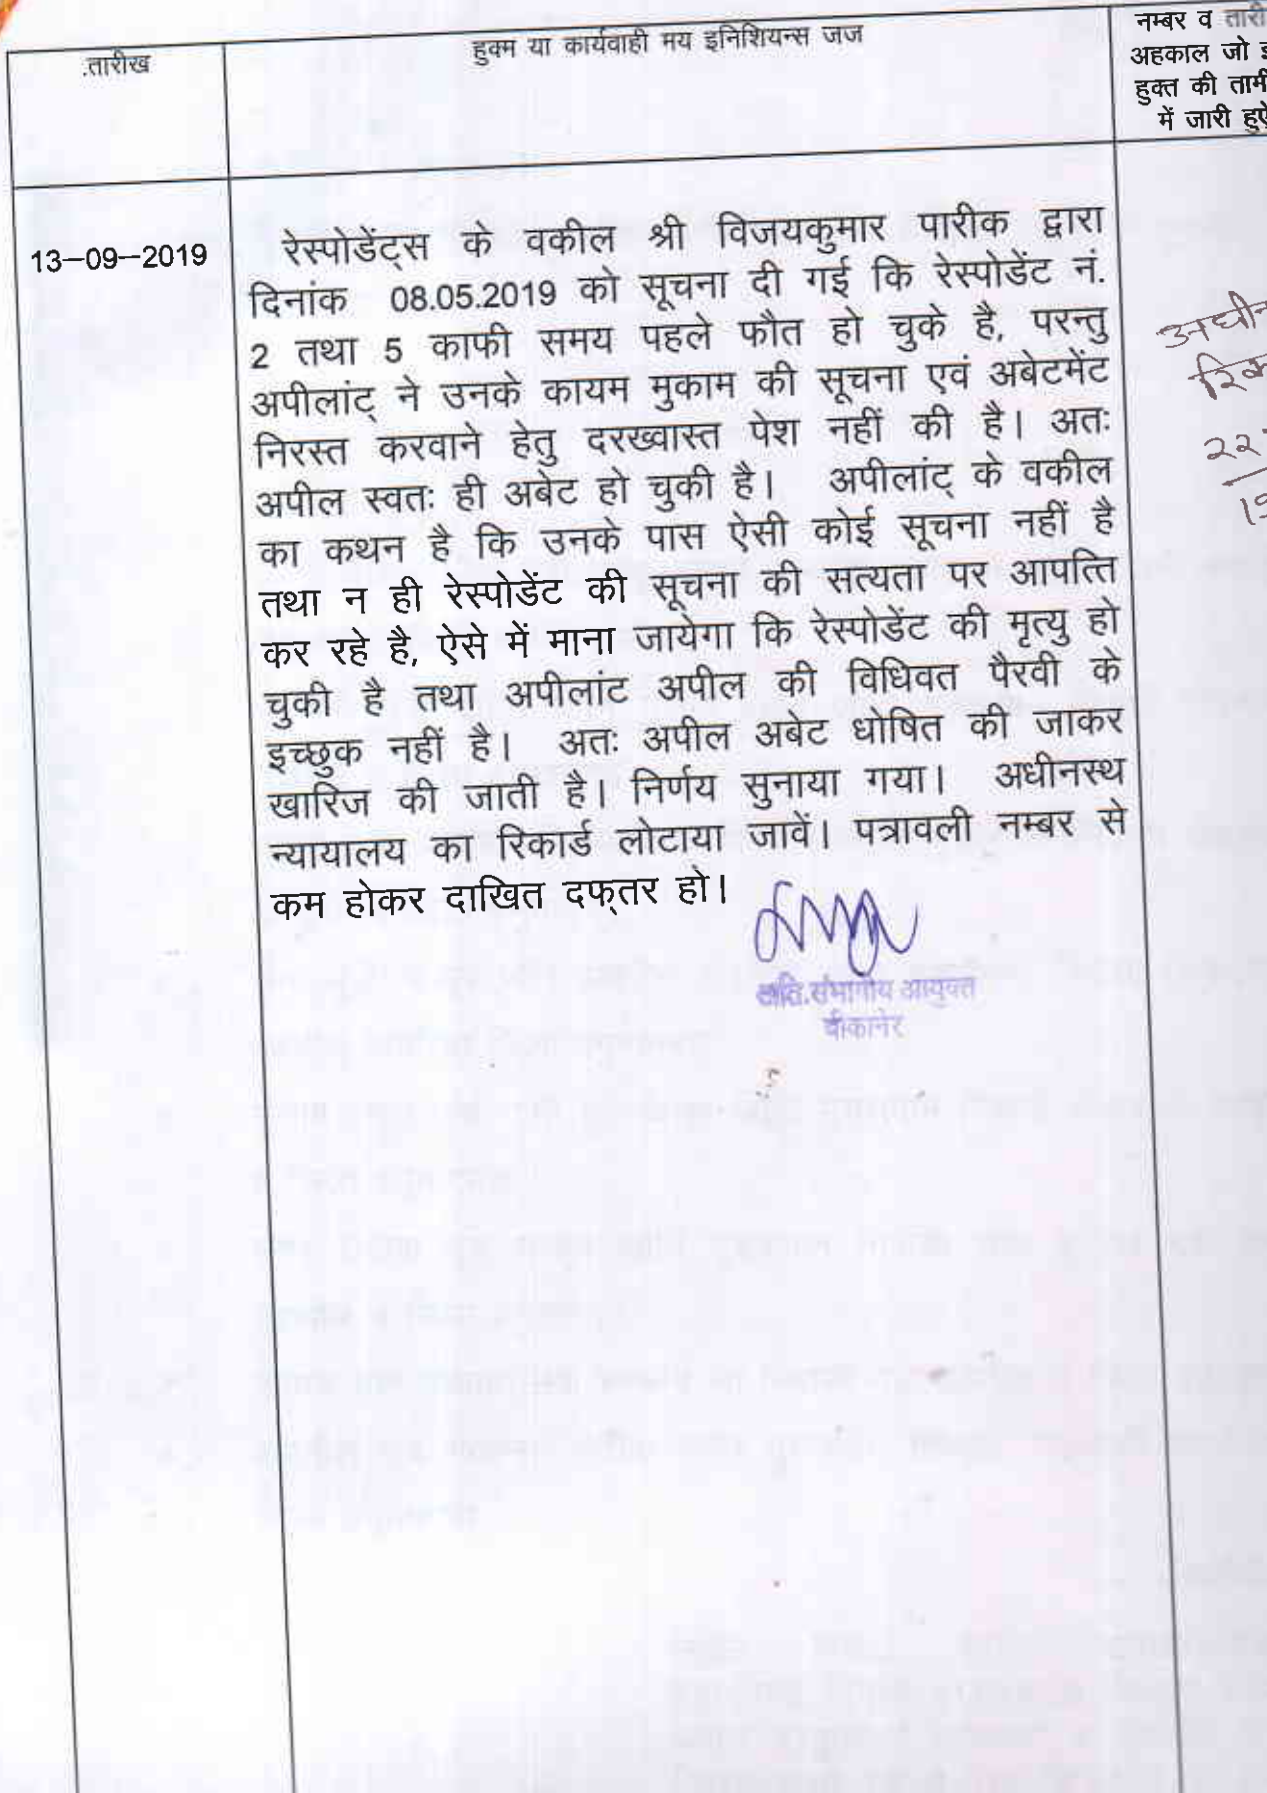 .तारीख
हुक्म या कार्यवाही मय इनिशियन्स जज
नम्बर व
अहकाल जो
हुक्त की
में जारी
13–09–2019
रेस्पोडेंट्स के वकील श्री विजयकुमार पारीक द्वारा
दिनांक 08.05.2019 को सूचना दी गई कि रेस्पोडेंट नं.
2 तथा 5 काफी समय पहले फौत हो चुके है, परन्तु
अपीलांट् ने उनके कायम मुकाम की सूचना एवं अबेटमेंट
निरस्त करवाने हेतु दरख्वास्त पेश नहीं की है। अतः
अपील स्वतः ही अबेट हो चुकी है। अपीलांट् के वकील
का कथन है कि उनके पास ऐसी कोई सूचना नहीं है
तथा न ही रेस्पोडेंट की सूचना की सत्यता पर आपत्ति
कर रहे है, ऐसे में माना जायेगा कि रेस्पोडेंट की मृत्यु हो
चुकी है तथा अपीलांट अपील की विधिवत पैरवी के
इच्छुक नहीं है। अतः अपील अबेट धोषित की जाकर
खारिज की जाती है। निर्णय सुनाया गया। अधीनस्थ
न्यायालय का रिकार्ड लोटाया जावें। पत्रावली नम्बर से
कम होकर दाखित दफ्तर हो।
अति.संभागीय आयुक्त
बीकानेर